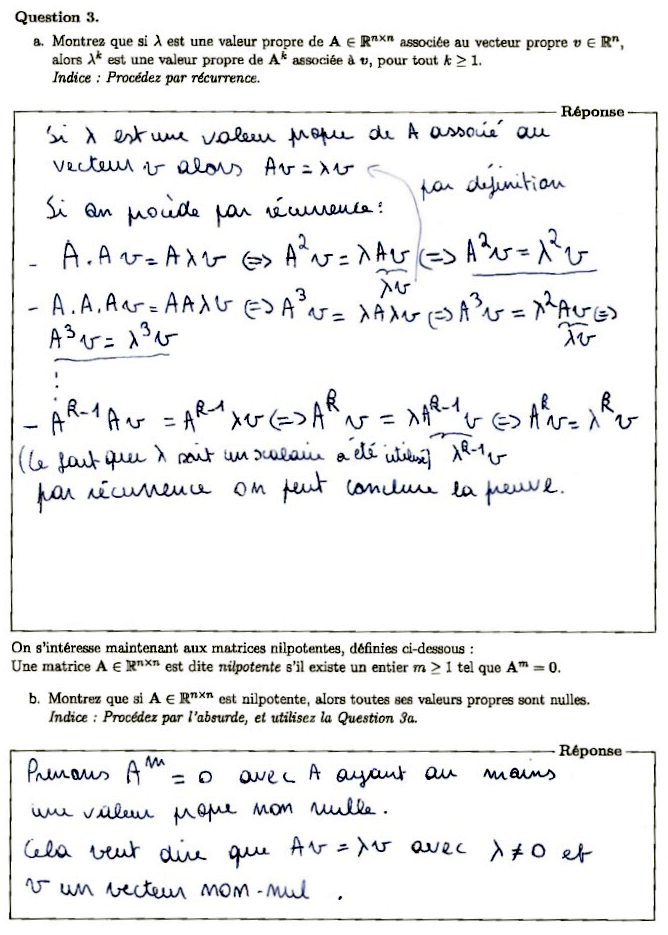 Question 3.
a. Montrez que si λ est une valeur propre de A ∈ ℝⁿˣⁿ associée au vecteur propre v ∈ ℝⁿ,
alors λᵏ est une valeur propre de Aᵏ associée à v, pour tout k ≥ 1.
Indice : Procédez par récurrence.
Réponse
Si λ est une valeur propre de A associé au
vecteur v alors Av = λv
par définition
Si on procède par récurrence :
- A.Av = Aλv ⟺ A²v = λAv ⟺ A²v = λ²v
λv
- A.A.Av = AAλv ⟺ A³v = λAλv ⟺ A³v = λ²Av ⟺
λv
A³v = λ³v
⋮
- Aᵏ⁻¹Av = Aᵏ⁻¹λv ⟺ Aᵏv = λAᵏ⁻¹v ⟺ Aᵏv = λᵏv
(Le fait que λ soit un scalaire a été utilisé) λᵏ⁻¹v
par récurrence on peut conclure la preuve.
On s'intéresse maintenant aux matrices nilpotentes, définies ci-dessous :
Une matrice A ∈ ℝⁿˣⁿ est dite nilpotente s'il existe un entier m ≥ 1 tel que Aᵐ = 0.
b. Montrez que si A ∈ ℝⁿˣⁿ est nilpotente, alors toutes ses valeurs propres sont nulles.
Indice : Procédez par l'absurde, et utilisez la Question 3a.
Réponse
Prenons Aᵐ = 0 avec A ayant au moins
une valeur propre non nulle.
Cela veut dire que Av = λv avec λ ≠ 0 et
v un vecteur non-nul.